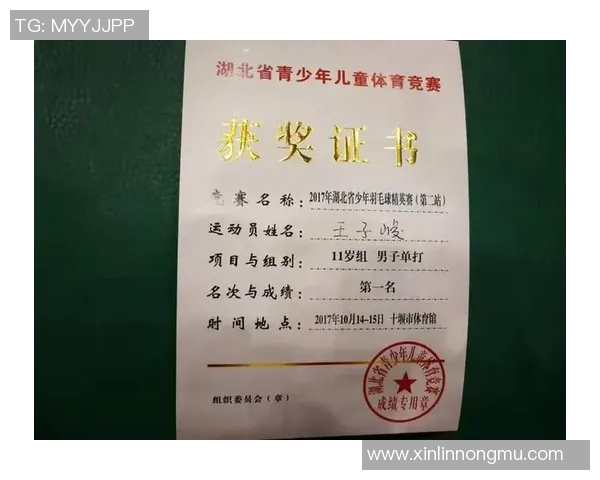 TG: MYYJJPP
湖北省青少年儿童体育竞赛
获奖证书
竞赛名称：2017年湖北省少年羽毛球精英赛（第二站）
运动员姓名：王子峻
项目与组别：11岁组 男子单打
名次与成绩：第一名
时间地点：2017年10月14-15日 十堰市体育馆
组织委员会（章）
湖北省青少年儿童体育竞赛
成绩专用章
www.xinlinnongmu.com